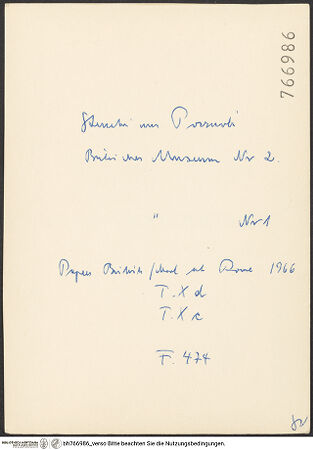 766986
Stucchi aus Pozzuoli
Britisches Museum Nr 2.
" Nr 1
Papers British School at Rome 1966
T. X d
T. X c
F. 474
bh766986_verso Bitte beachten Sie die Nutzungsbedingungen.